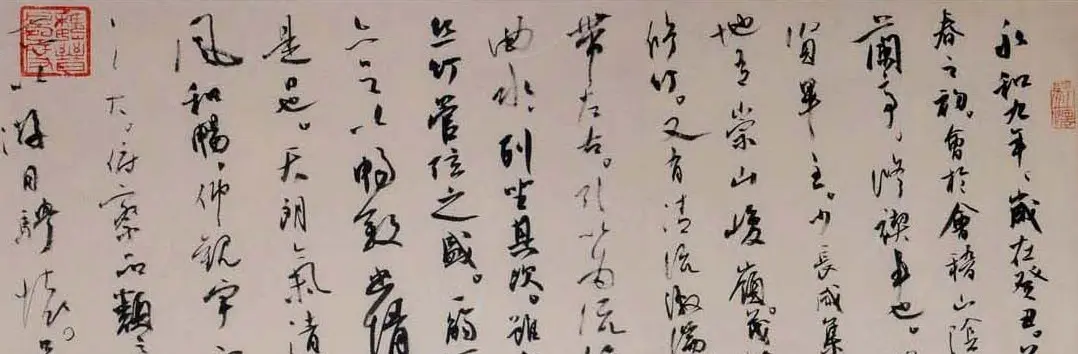 永和九年、歲在癸丑。
春之初。會於會稽山陰
蘭亭。修禊事也。
賢畢至。少長咸集
地有崇山峻嶺。茂
修竹。又有清流激湍
帶左右。引以為流
曲水。列坐其次。雖
絲竹管弦之盛。一觴
亦足以暢敘幽情
是日也。天朗氣清
風和暢。仰觀宇
之大。俯察品類之
所以游目騁懷。